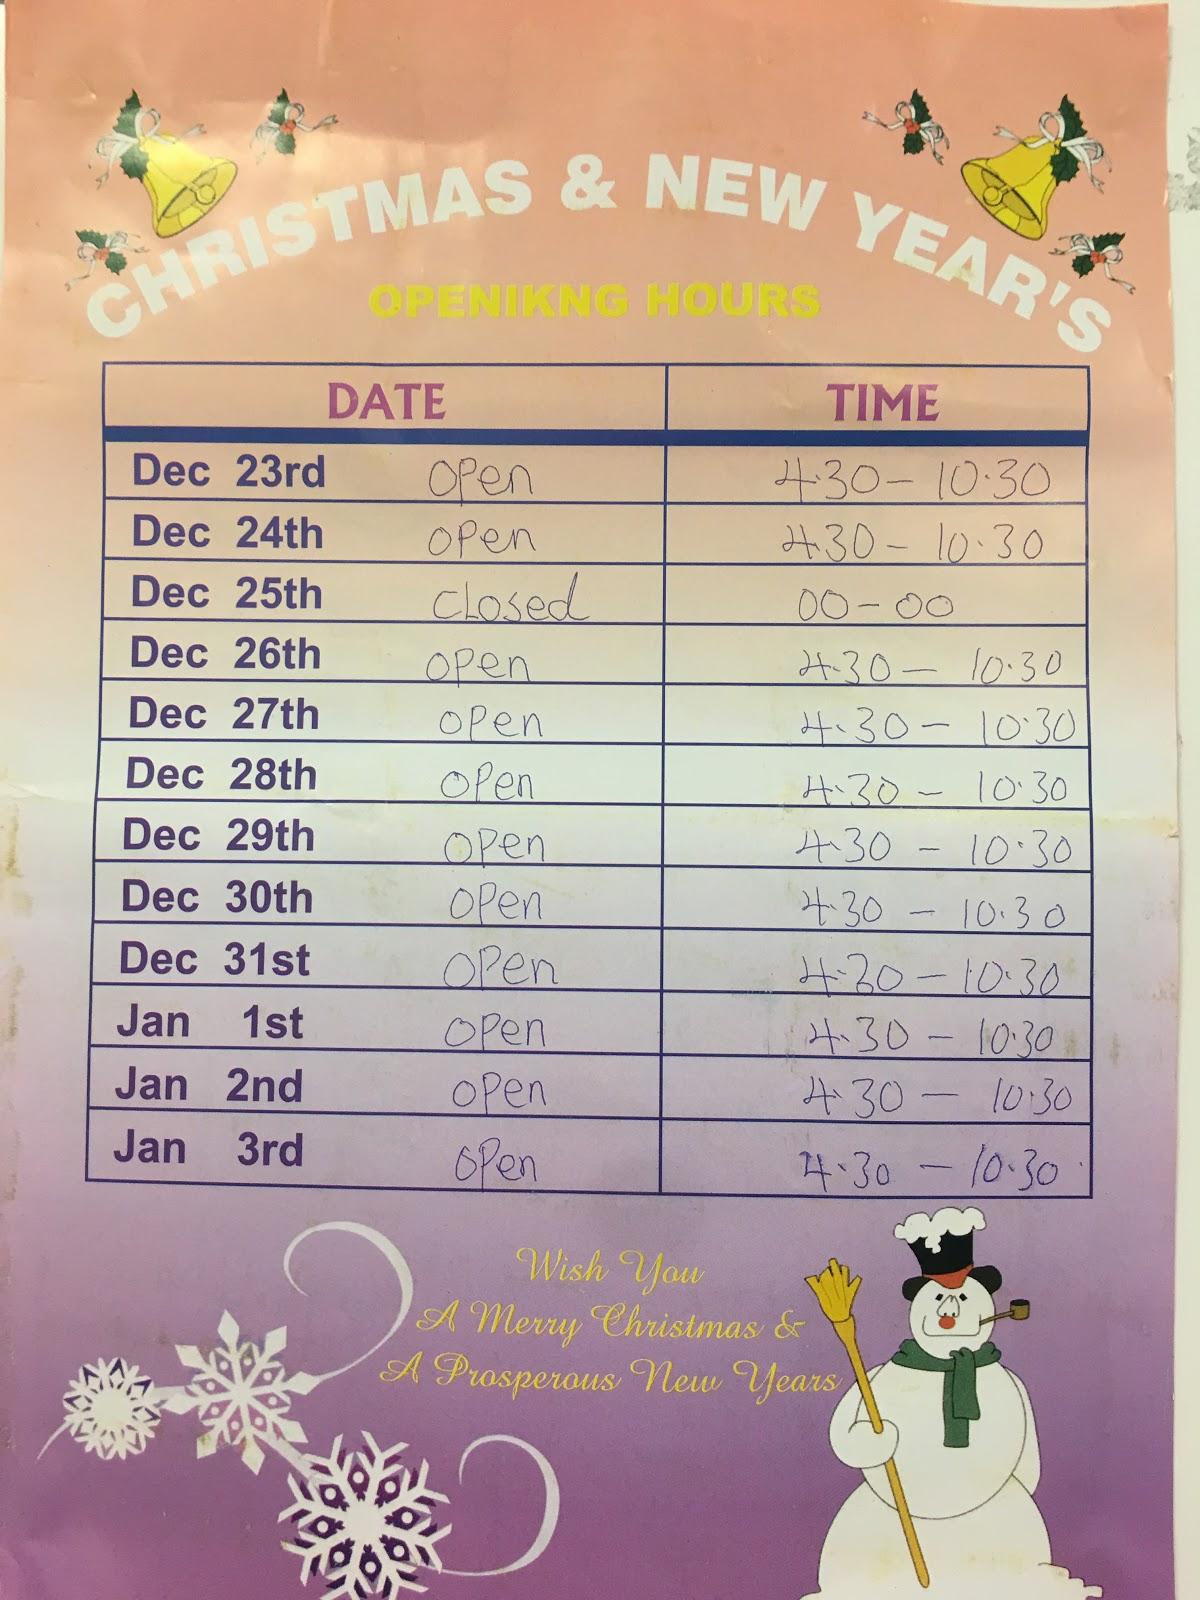 CHRISTMAS & NEW YEAR'S
OPENIKNG HOURS
DATE TIME
Dec 23rd Open 4.30 - 10.30
Dec 24th Open 4.30 - 10.30
Dec 25th Closed 00-00
Dec 26th Open 4.30 - 10.30
Dec 27th Open 4.30 - 10.30
Dec 28th Open 4.30 - 10.30
Dec 29th Open 4.30 - 10.30
Dec 30th Open 4.30 - 10.30
Dec 31st Open 4.20 - 10.30
Jan 1st Open 4.30 - 10.30
Jan 2nd Open 4.30 - 10.30
Jan 3rd Open 4.30 - 10.30
Wish You
A Merry Christmas &
A Prosperous New Years